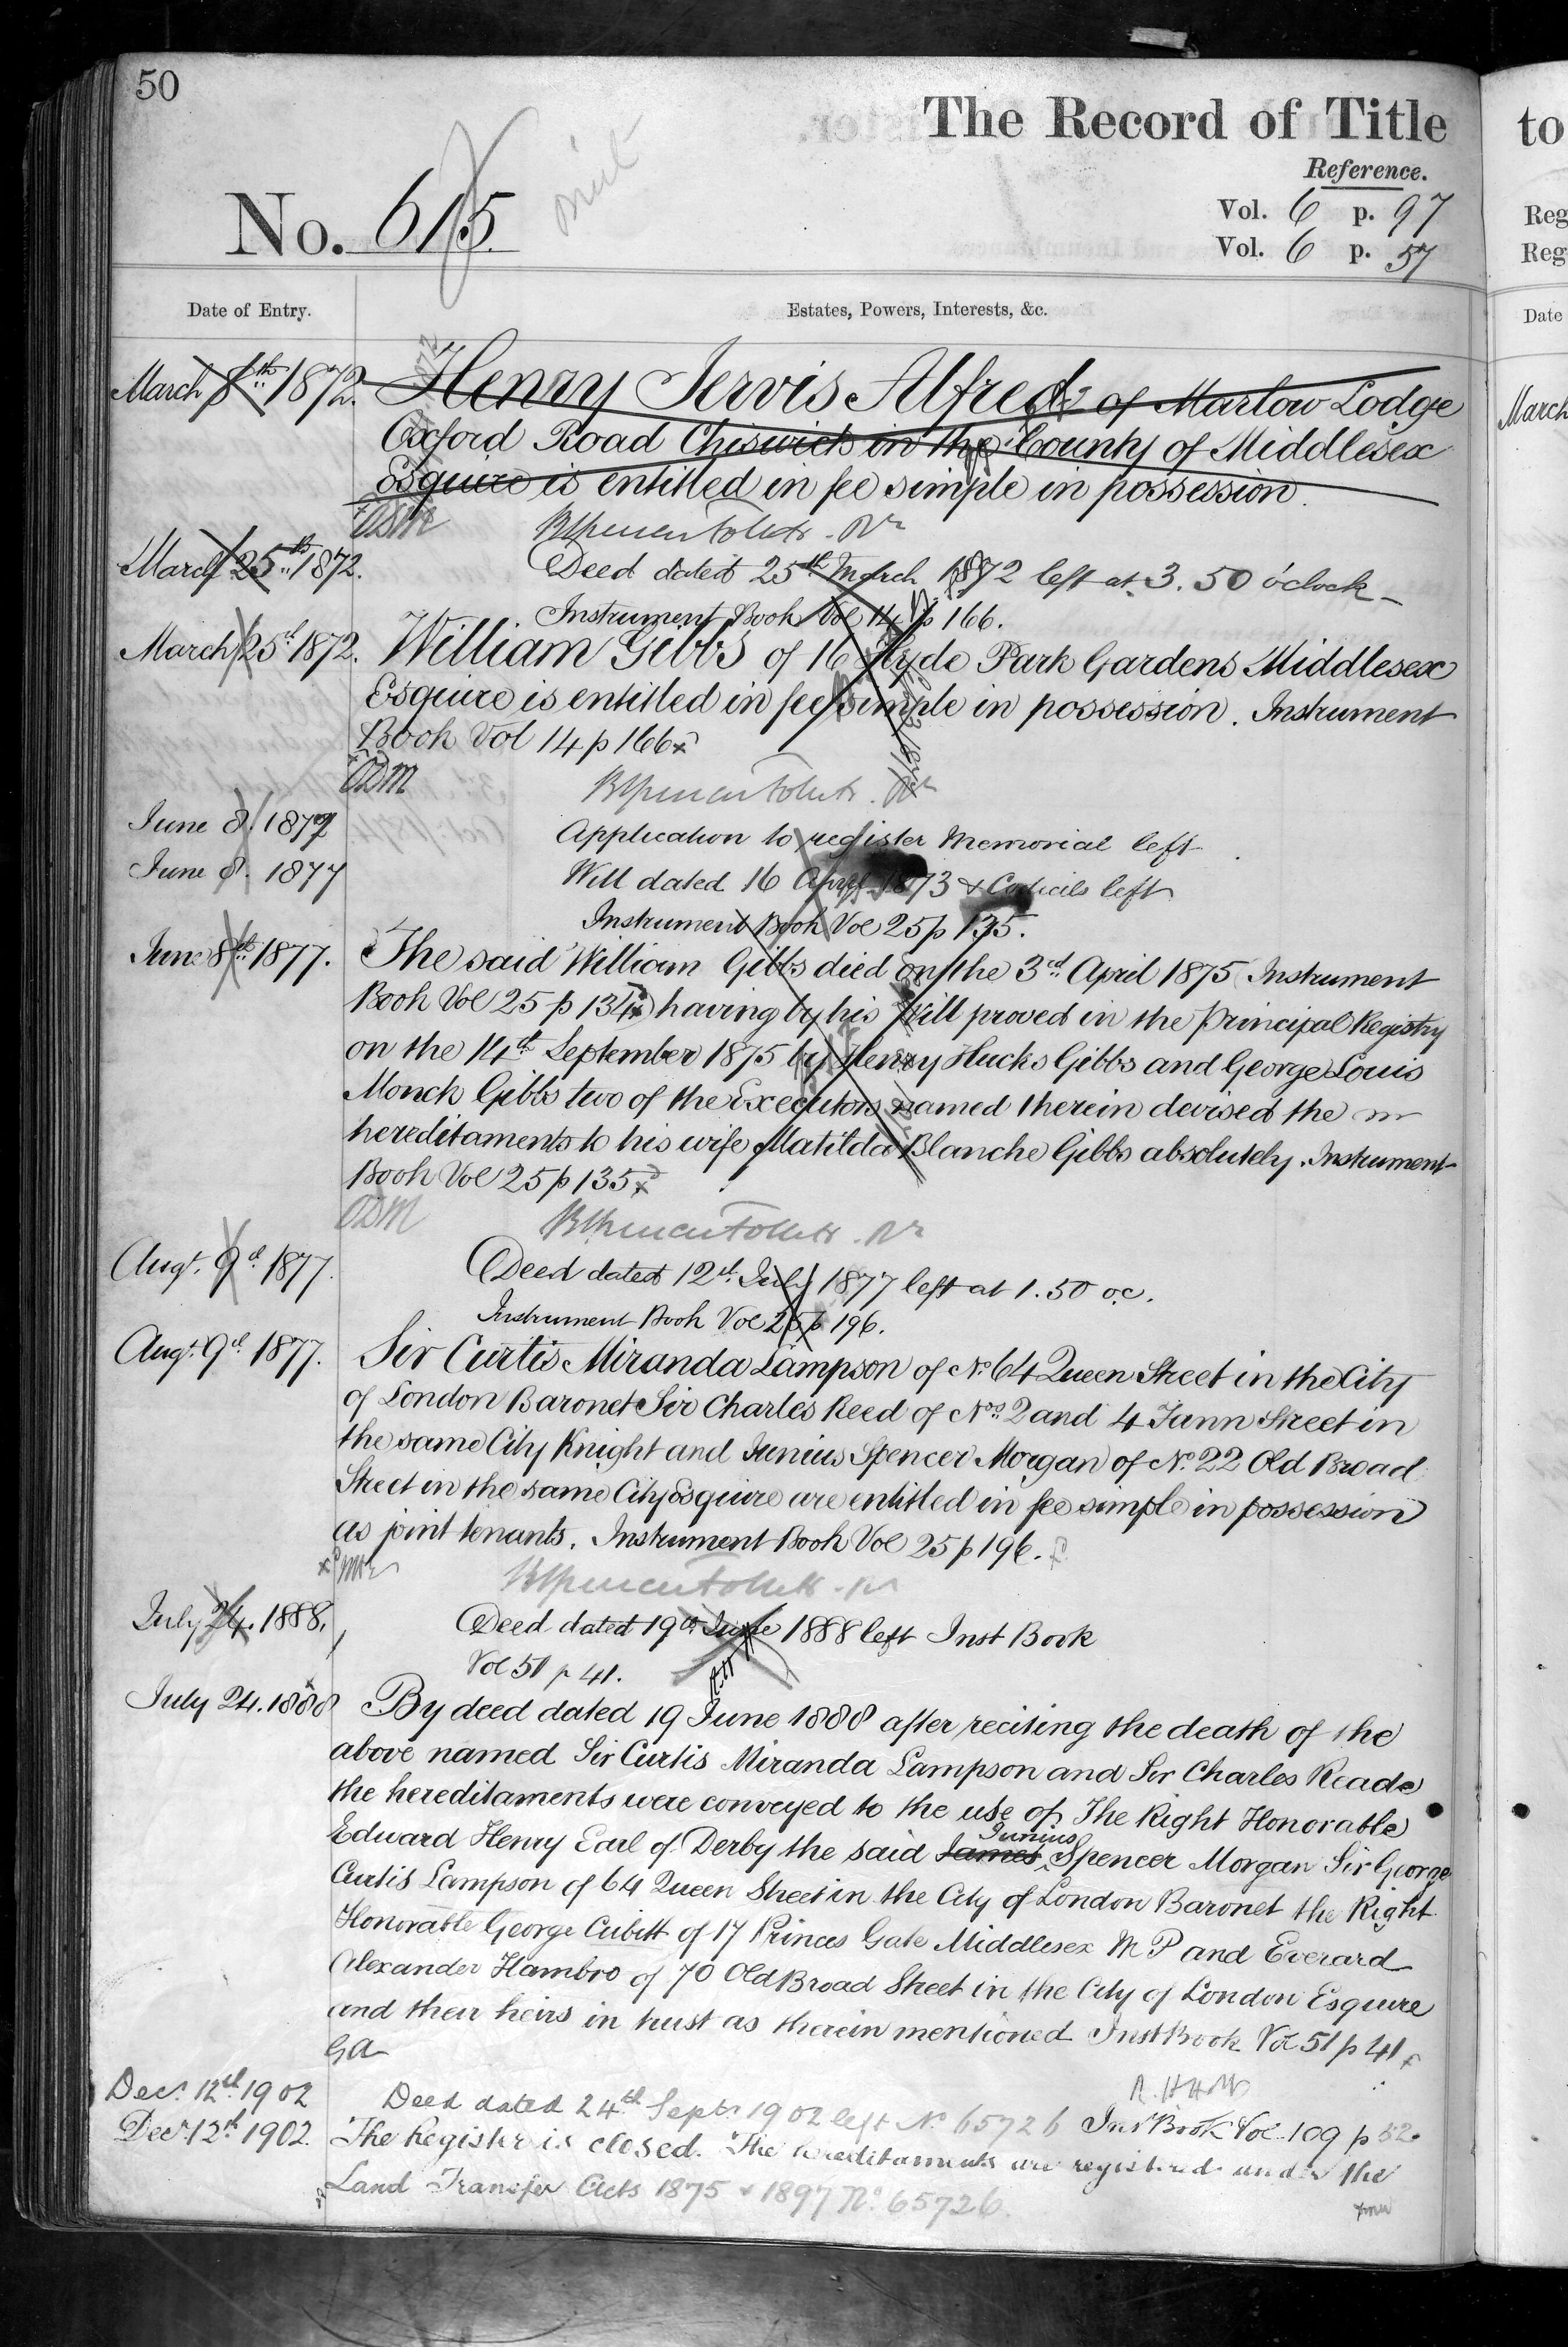 50
The Record of Title
Reference.
No. 615
Vol. 6 p. 97
Vol. 6 p. 57
Date of Entry.
Estates, Powers, Interests, &c.
March 8th 1872. Henry Jervis Alfred of Marlow Lodge
Oxford Road Chiswick in the County of Middlesex
Esquire is entitled in fee simple in possession.
March 25th 1872. Deed dated 25th March 1872 left at 3.50 o'clock
Instrument Book Vol 14 p 166.
March 25th 1872. William Gibbs of 16 Hyde Park Gardens Middlesex
Esquire is entitled in fee simple in possession. Instrument
Book Vol 14 p 166
June 8. 1877 Application to register Memorial left
June 8. 1877 Will dated 16 April 1873 & Codicils left
Instrument Book Vol 25 p 135.
June 8th 1877. The said William Gibbs died on the 3rd April 1875 Instrument
Book Vol 25 p 134 having by his Will proved in the Principal Registry
on the 14th September 1875 by Henry Hucks Gibbs and George Louis
Monck Gibbs two of the Executors named therein devised the
hereditaments to his wife Matilda Blanche Gibbs absolutely. Instrument
Book Vol 25 p 135
Augt. 9th 1877. Deed dated 12th July 1877 left at 1.50 oc.
Instrument Book Vol 25 p 196.
Augt. 9th 1877. Sir Curtis Miranda Lampson of No. 64 Queen Street in the City
of London Baronet Sir Charles Reed of Nos. 2 and 4 Fann Street in
the same City Knight and Junius Spencer Morgan of No. 22 Old Broad
Street in the same City Esquire are entitled in fee simple in possession
as joint tenants. Instrument Book Vol 25 p 196.
July 24. 1888. Deed dated 19th June 1888 left Inst Book
Vol 51 p 41.
July 24. 1888 By deed dated 19 June 1888 after reciting the death of the
above named Sir Curtis Miranda Lampson and Sir Charles Reade
the hereditaments were conveyed to the use of The Right Honorable
Edward Henry Earl of Derby the said James Junius Spencer Morgan Sir George
Curtis Lampson of 64 Queen Street in the City of London Baronet the Right
Honorable George Cubitt of 17 Princes Gate Middlesex M P and Everard
Alexander Hambro of 70 Old Broad Street in the City of London Esquire
and their heirs in trust as therein mentioned Inst Book Vol 51 p 41
Decr. 12th 1902 Deed dated 24th Septr 1902 left No. 65726 Inst Book Vol. 109 p 52.
Decr. 12th 1902. The Register is closed. The hereditaments are registered under the
Land Transfer Acts 1875 & 1897 No. 65726.
to
Reg
Reg
Date
March